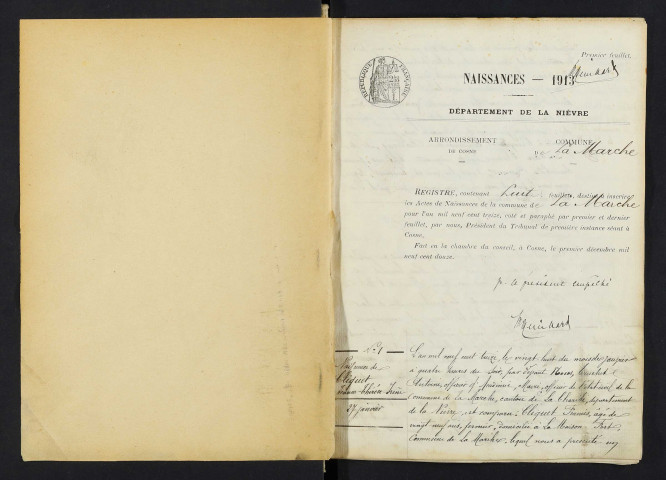 Premier feuillet.
RÉPUBLIQUE FRANÇAISE
NAISSANCES — 1913
DÉPARTEMENT DE LA NIÈVRE
ARRONDISSEMENT
DE COSNE
COMMUNE
de La Marche
REGISTRE, contenant huit feuillets, destiné à inscrire
les Actes de Naissances de la commune de La Marche
pour l'an mil neuf cent treize, coté et paraphé par premier et dernier
feuillet, par nous, Président du Tribunal de première instance séant à
Cosne.
Fait en la chambre du conseil, à Cosne, le premier décembre mil
neuf cent douze.
p. le président empêché
N° 1
Naissance de
Cliquet
27 janvier
L'an mil neuf cent treize le vingt huit du mois de janvier
à quatre heures du soir, par devant Nous,
Antoine, officier d'Académie, Maire, officier de l'état civil de la
Commune de La Marche, canton de La Charité, département
de la Nièvre, est comparu Cliquet, âgé de
vingt neuf ans, fermier, domicilié à La Maison Fort
Commune de La Marche, lequel nous a présenté un